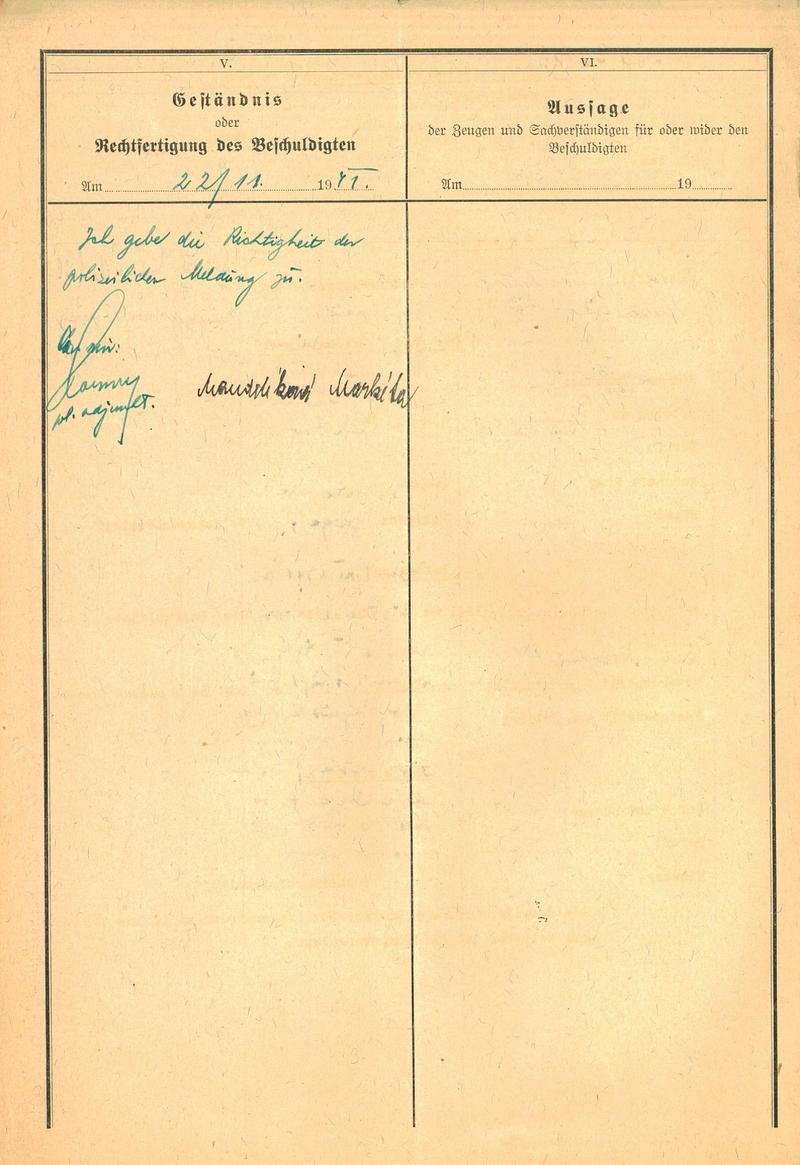 V.
Geständnis
oder
Rechtfertigung des Beschuldigten
Am 22/11. 1941.
Ich gebe die Richtigkeit der
polizeilichen Meldung zu.
pol. adjunkt.
Mandelíková Markéta
VI.
Aussage
der Zeugen und Sachverständigen für oder wider den
Beschuldigten
Am 19